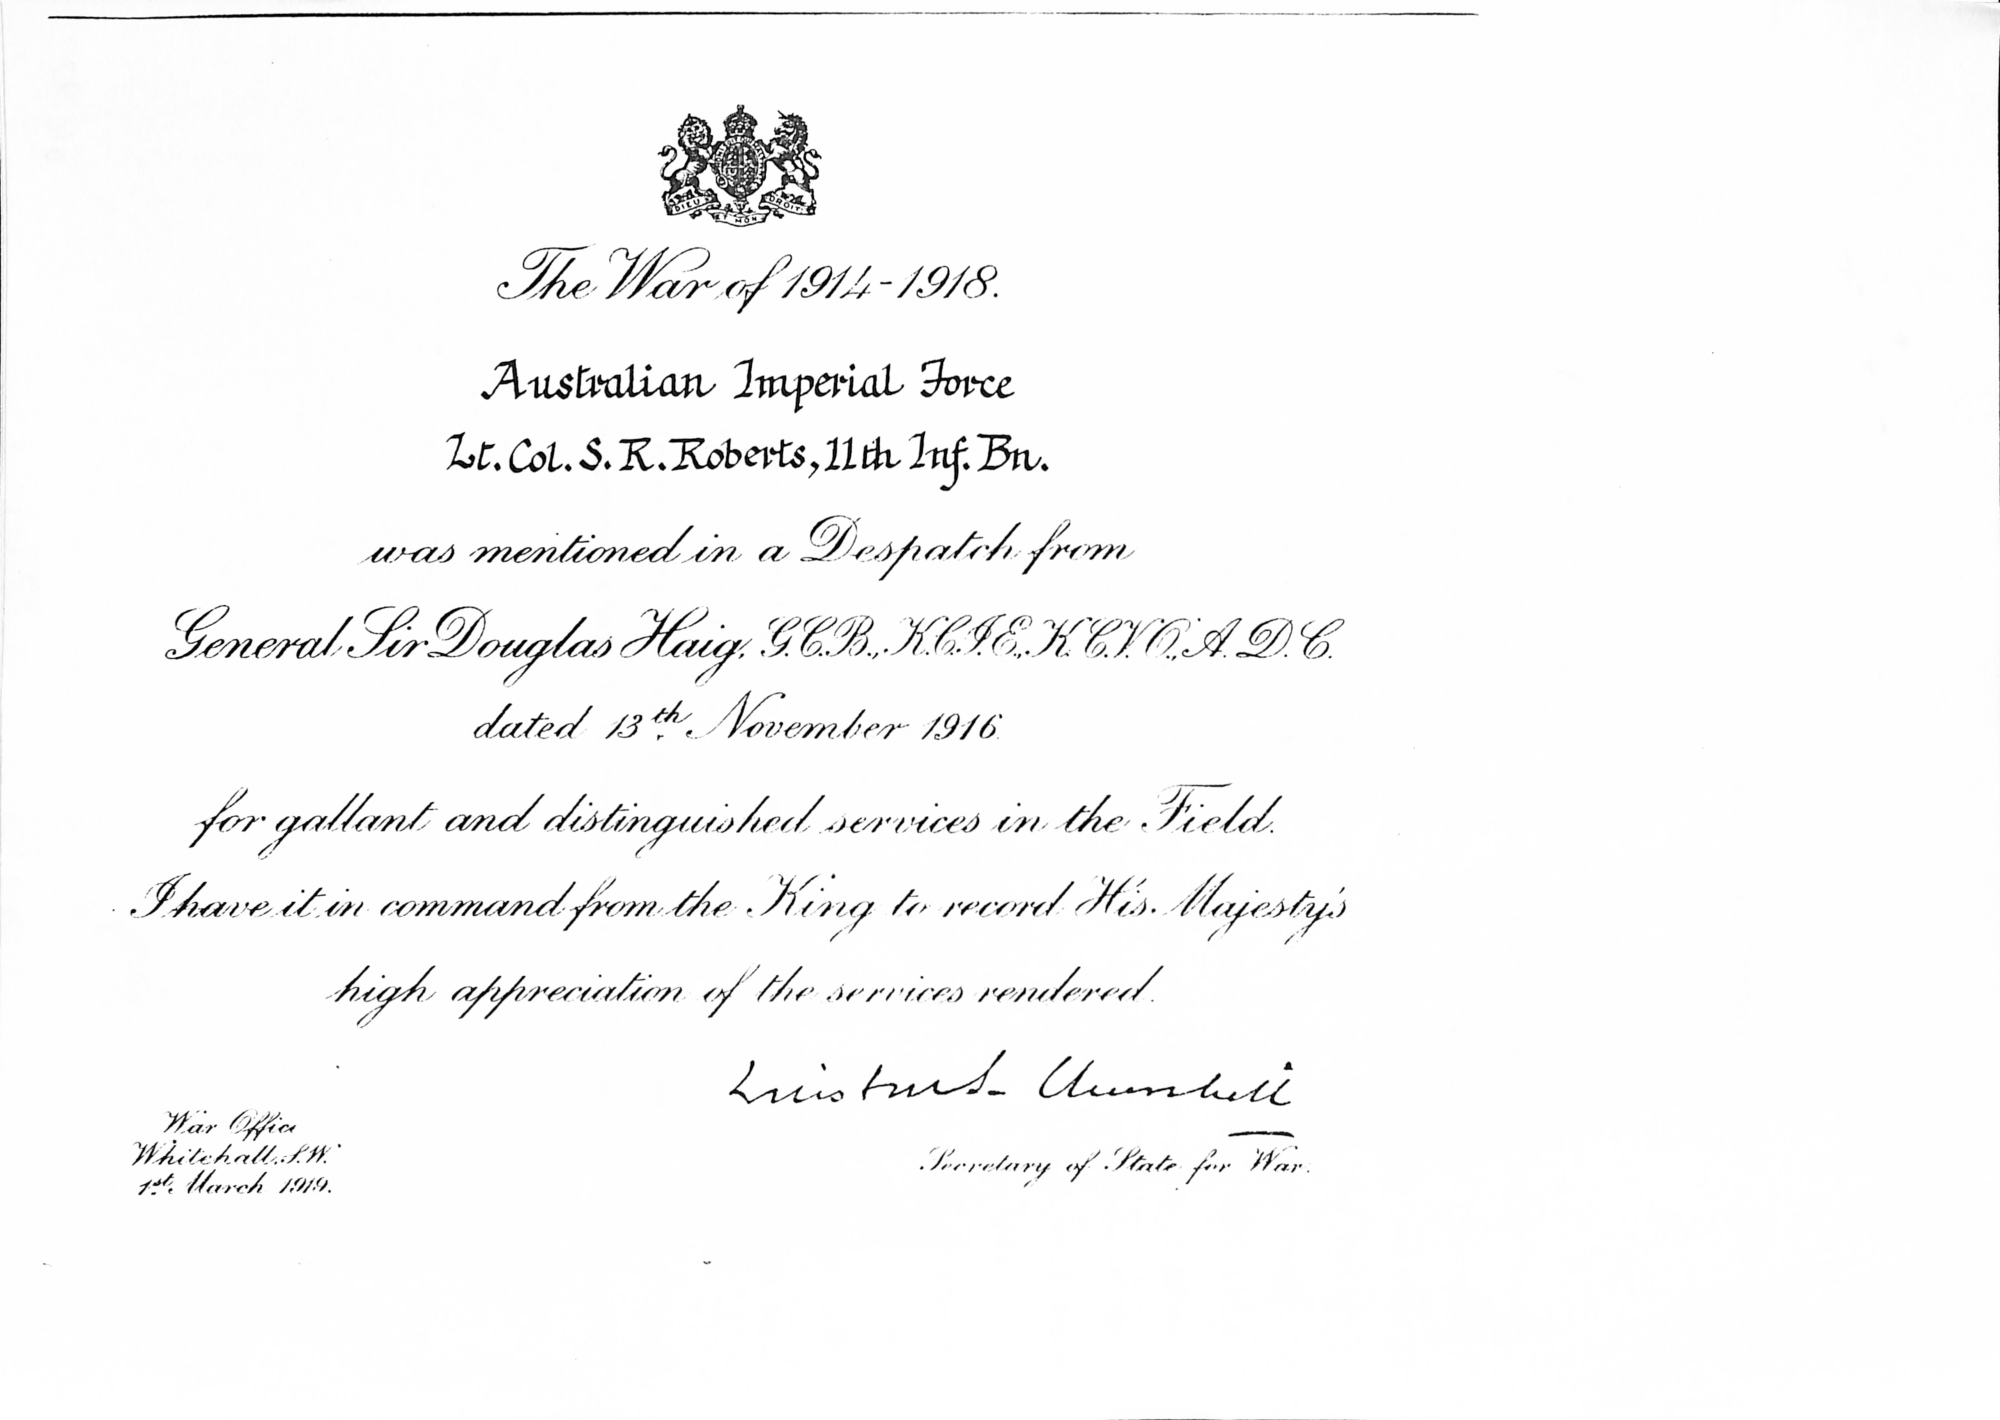 DIEU ET MON DROIT
The War of 1914-1918.
Australian Imperial Force
Lt. Col. S. R. Roberts, 11th Inf. Bn.
was mentioned in a Despatch from
General Sir Douglas Haig, G.C.B., K.C.I.E., K.C.V.O., A.D.C.
dated 13th November 1916.
for gallant and distinguished services in the Field.
I have it in command from the King to record His Majesty's
high appreciation of the services rendered.
Winston S. Churchill
Secretary of State for War.
War Office
Whitehall, S.W.
1st March 1919.